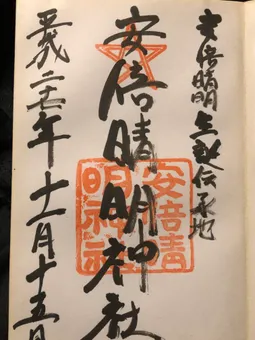 安倍晴明生誕伝承地
安倍晴明神社
平成二十七年十一月十五日
安倍晴
明神社